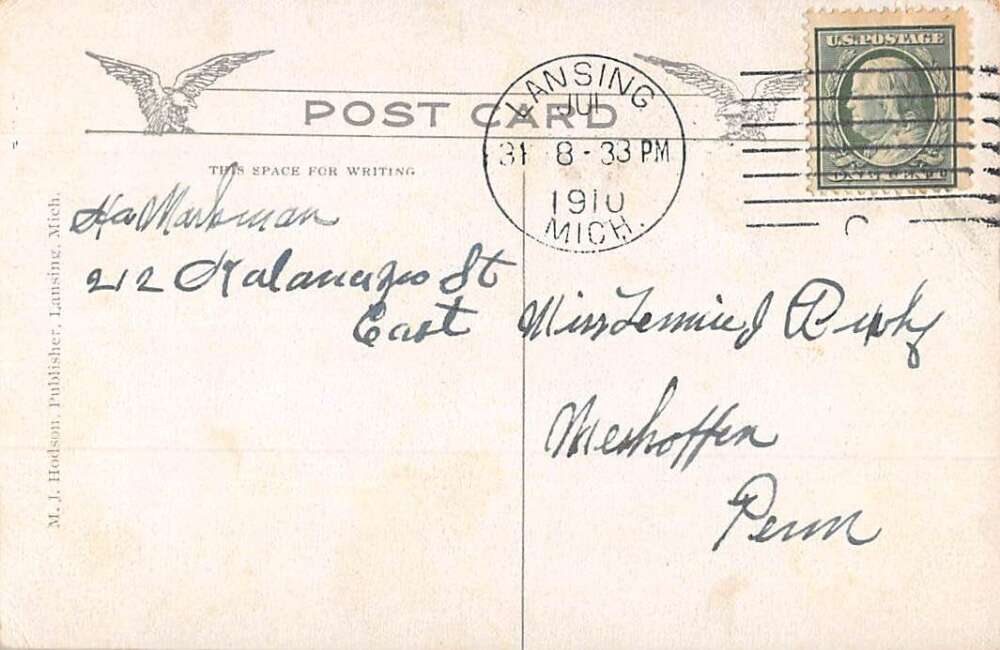 POST CARD
THIS SPACE FOR WRITING
LANSING
JUL
31 8-33 PM
1910
MICH.
U.S. POSTAGE
ONE CENT
Markman
212 Kalamazoo St
East
Miss Jennie J
Meshoppen
Penn
M. J. Hodson, Publisher, Lansing, Mich.